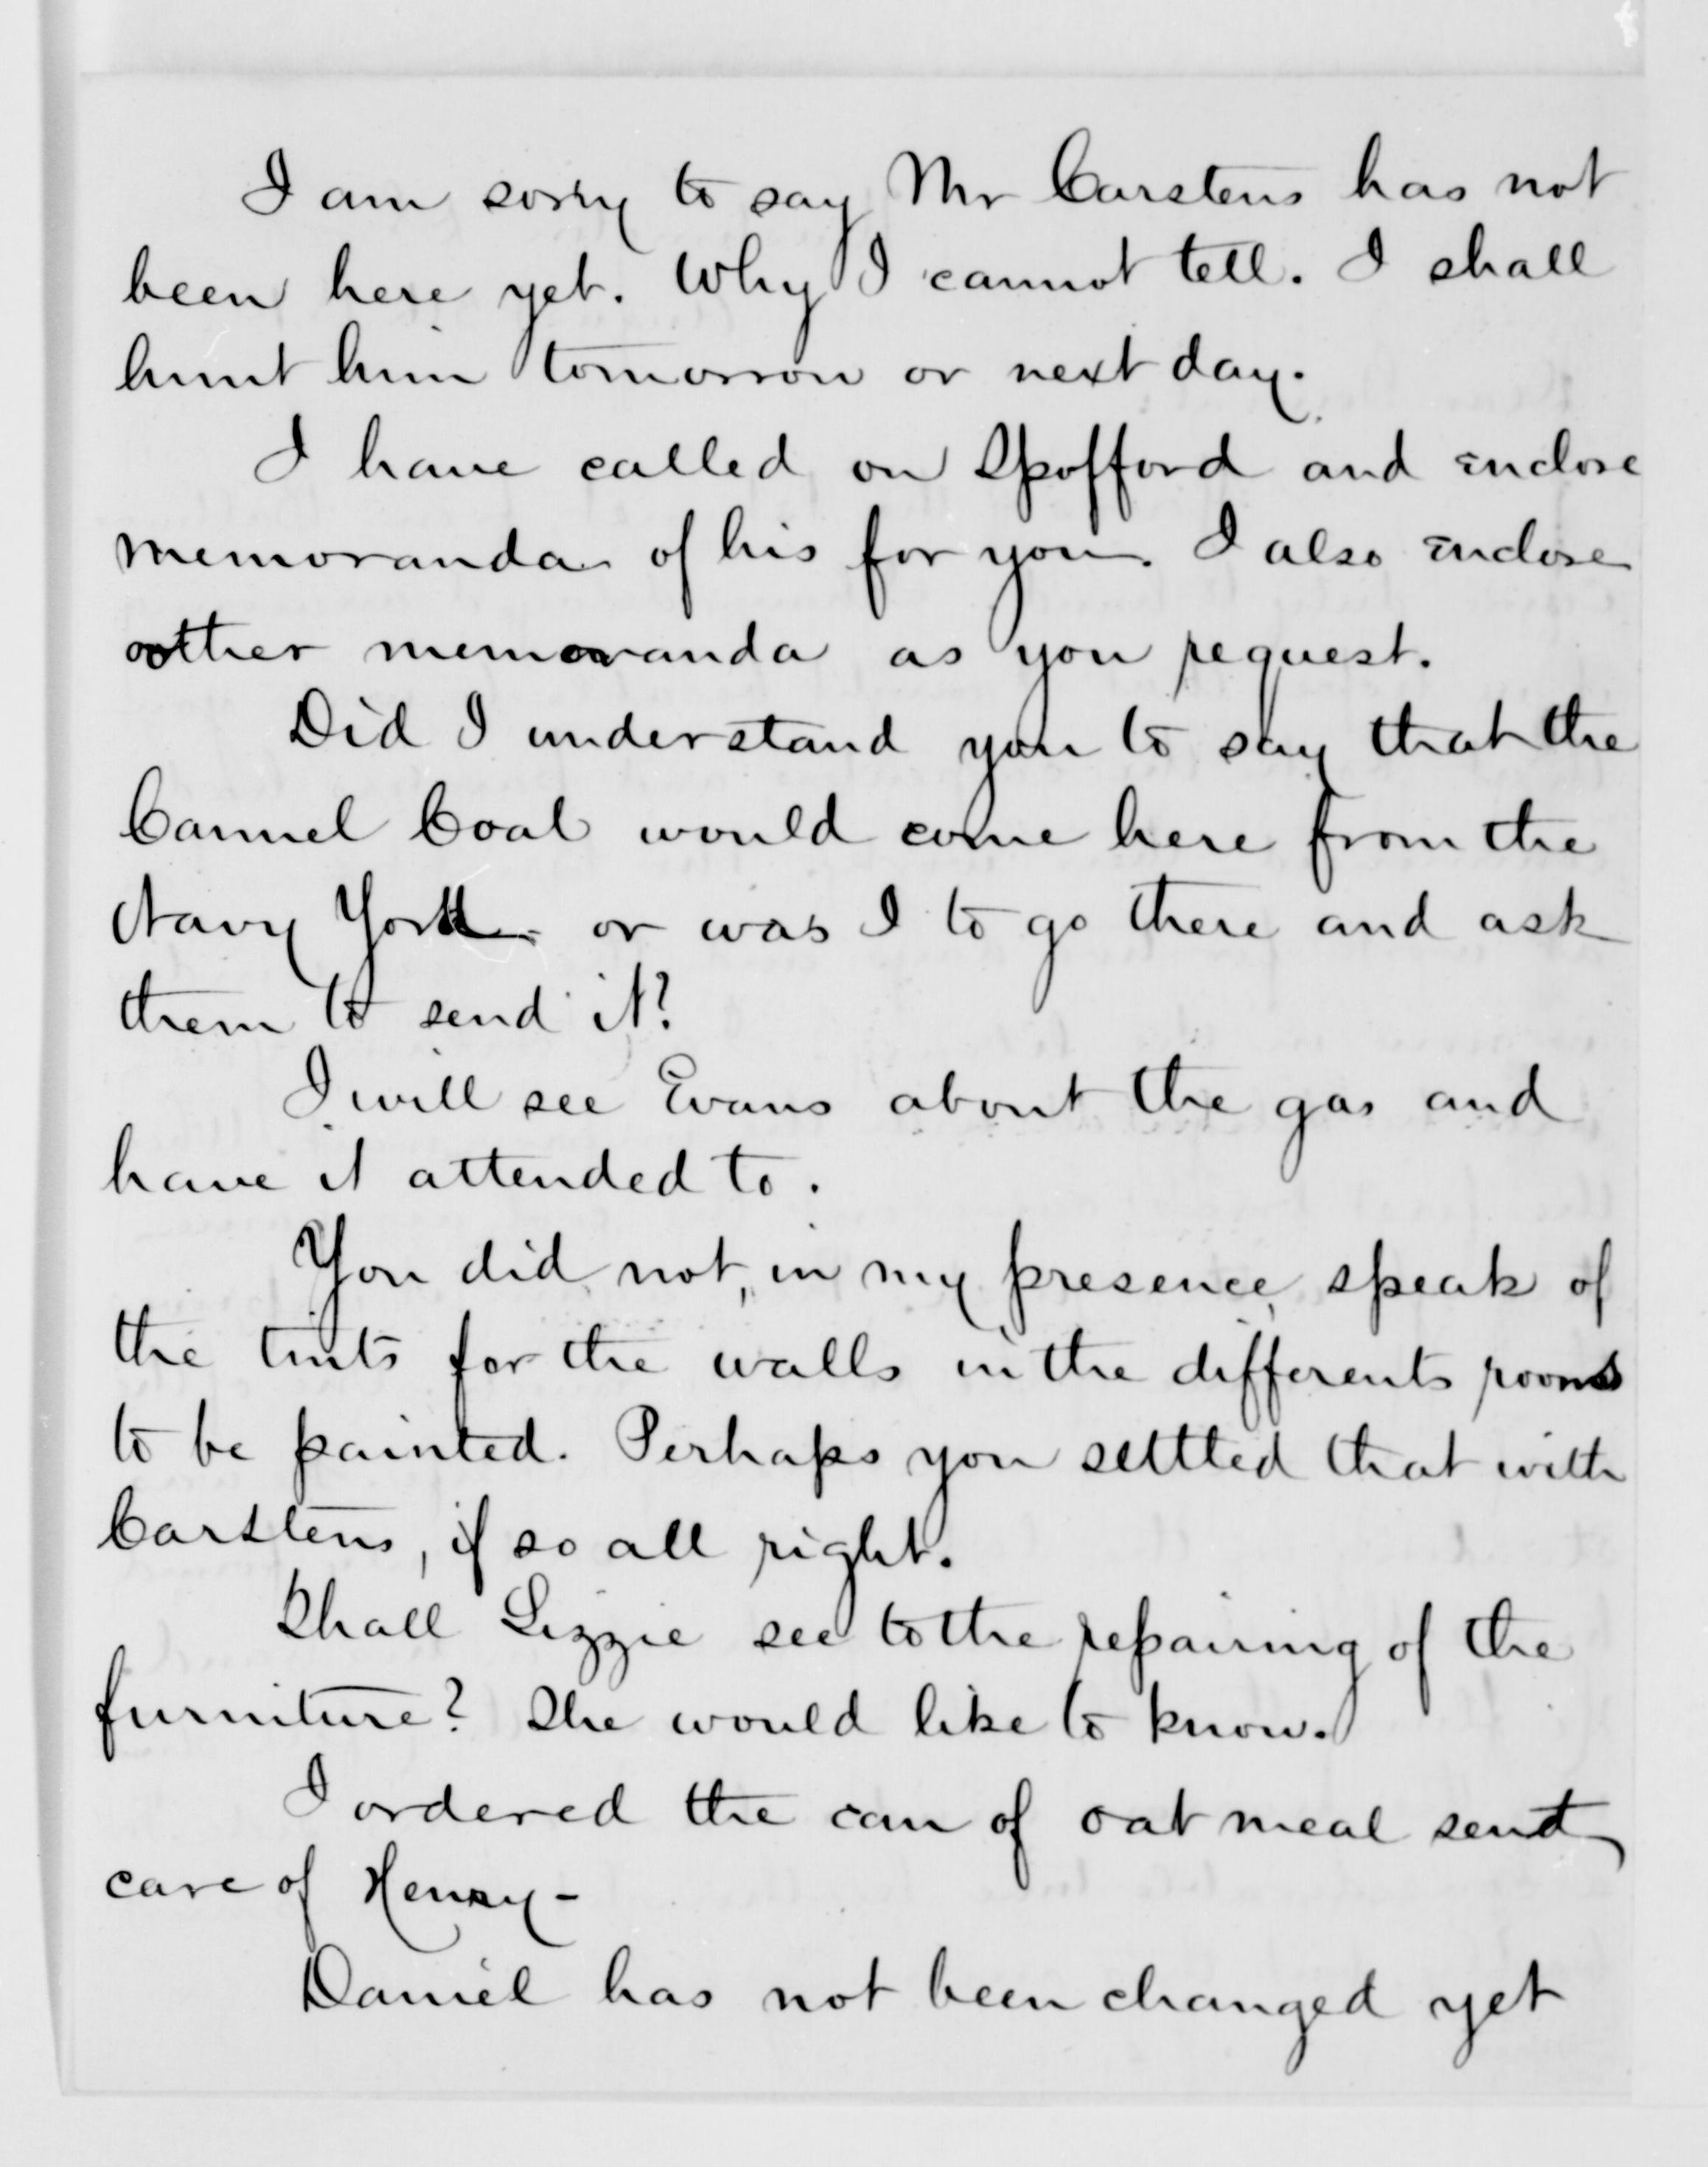 I am sorry to say Mr Carstens has not
been here yet. Why I cannot tell. I shall
hunt him tomorrow or next day.
I have called on Spofford and inclose
memoranda of his for you. I also inclose
other memoranda as you request.
Did I understand you to say that the
Cannel Coal would come here from the
Navy York - or was I to go there and ask
them to send it?
I will see Evans about the gas and
have it attended to.
You did not, in my presence, speak of
the tints for the walls in the differents rooms
to be painted. Perhaps you settled that with
Carstens, if so all right.
Shall Lizzie see to the repairing of the
furniture? She would like to know.
I ordered the can of oat meal sent
care of Henry -
Daniel has not been changed yet